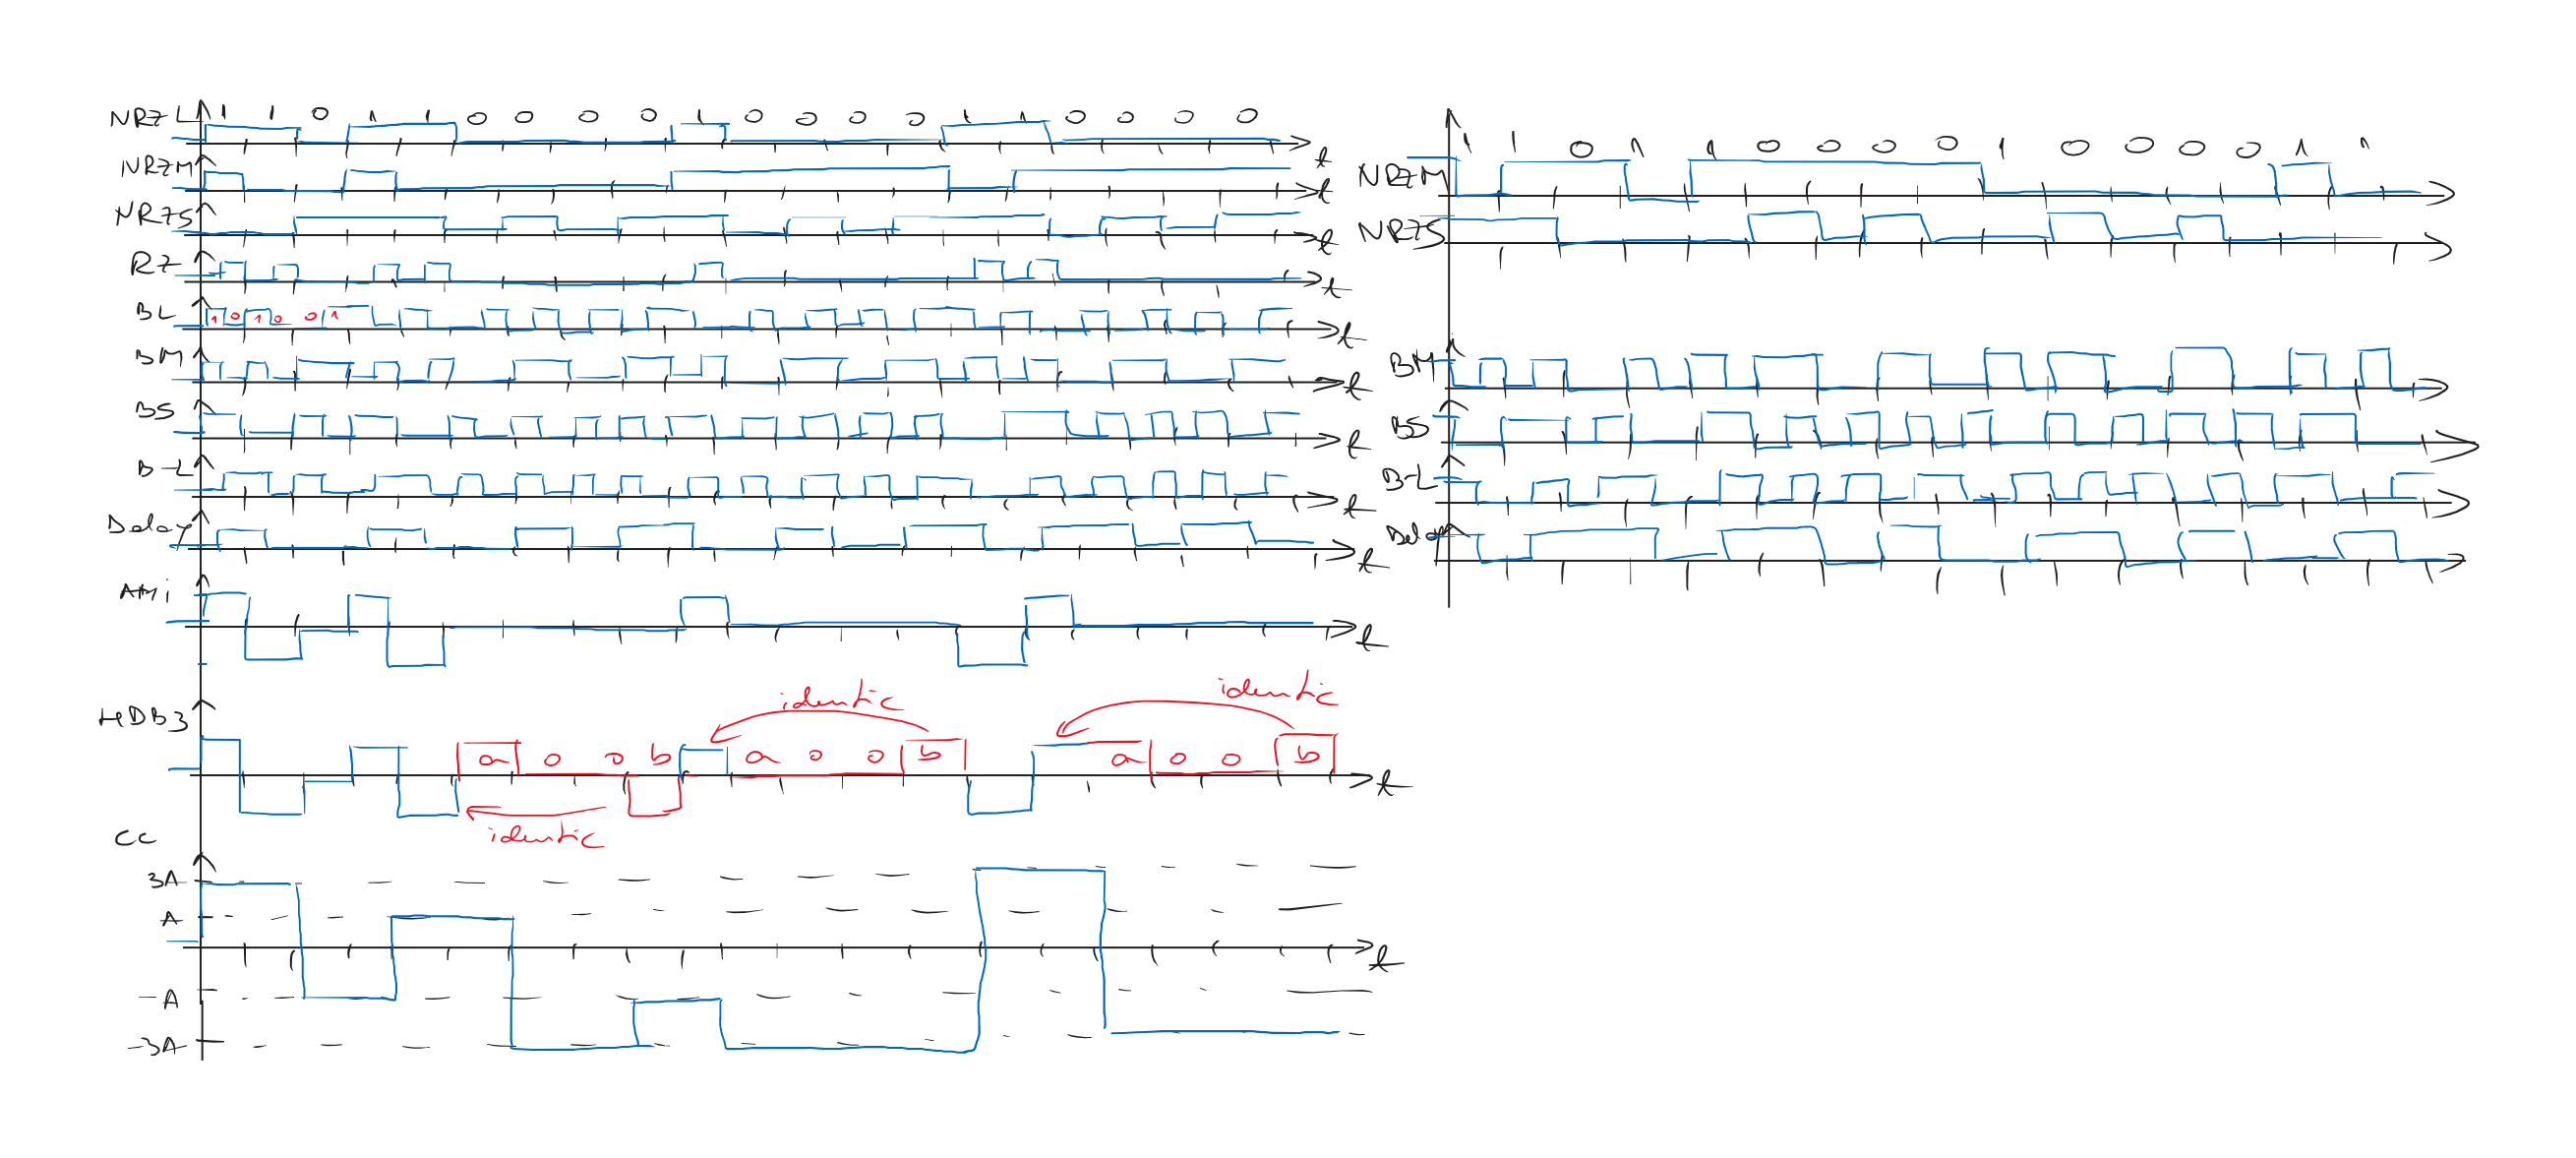 NRZ-L 1 1 0 1 1 0 0 0 0 1 0 0 0 0 1 1 0 0 0 0
t
NRZM
t
NRZS
t
RZ
t
BL 1 0 1 0 0 1
t
BM
t
BS
t
B-L
t
Delay
t
AMi
t
identic
identic
HDB3
a 0 0 b a 0 0 b a 0 0 b
t
identic
CC
3A
A
t
-A
-3A
1 1 0 1 1 0 0 0 0 1 0 0 0 0 1 1
NRZM
NRZS
BM
BS
B-L
Delay